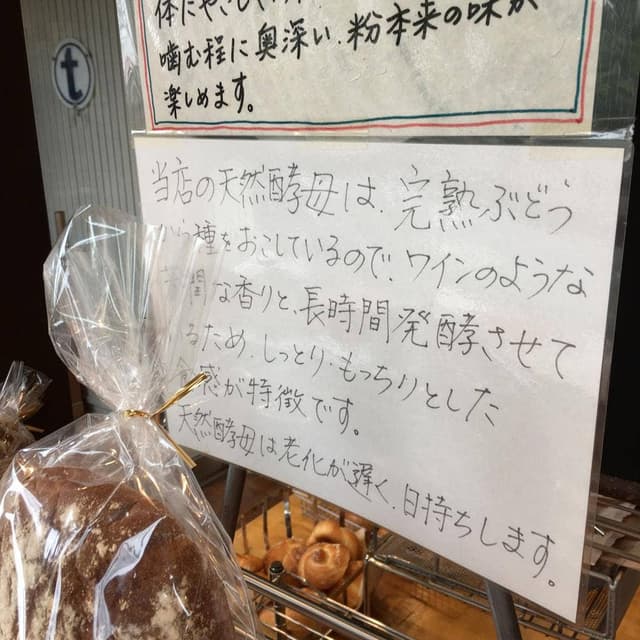 体にやさしい
噛む程に奥深い、粉本来の味が
楽しめます。
t
当店の天然酵母は、完熟ぶどう
から種をおこしているので、ワインのような
な香りと、長時間発酵させて
るため、しっとり・もっちりとした
食感が特徴です。
天然酵母は老化が遅く、日持ちします。